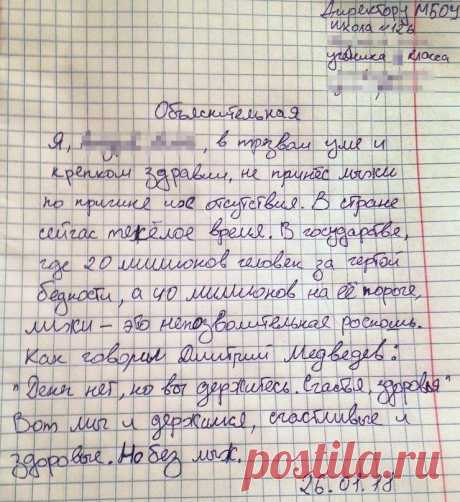 Директору МБОУ
школа №126
ученика класса
Объяснительная
Я, , в трезвом уме и
крепком здравии, не принёс лыжи
по причине их отсутствия. В стране
сейчас тяжёлое время. В государстве,
где 20 миллионов человек за чертой
бедности, а 40 миллионов на её пороге,
лыжи – это непозволительная роскошь.
Как говорил Дмитрий Медведев:
"Денег нет, но вы держитесь. Счастья, здоровья"
Вот мы и держимся, счастливые и
здоровые. Но без лыж.
26.01.18
postila.ru